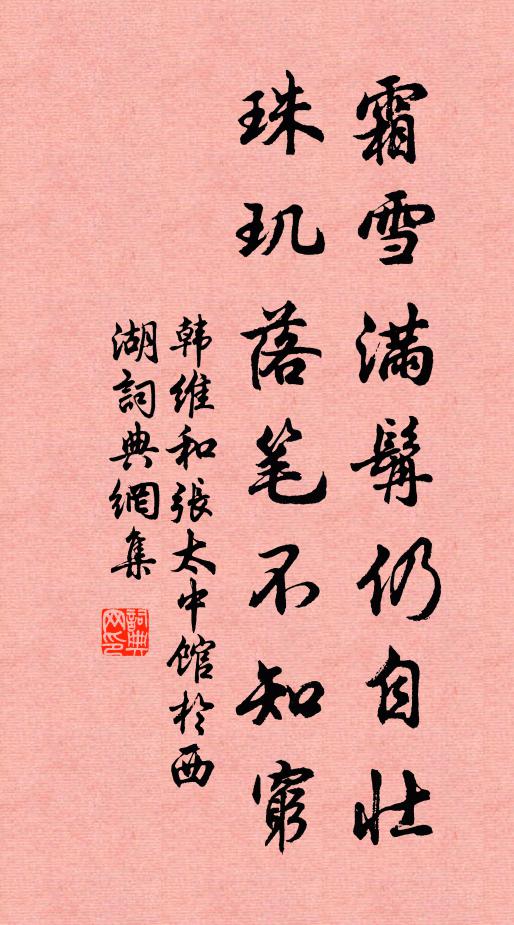 霜雪满鬓仍自壮
珠玑落笔不知窮
韩维和張太中馆於西
湖詞典網集
詞典
网印